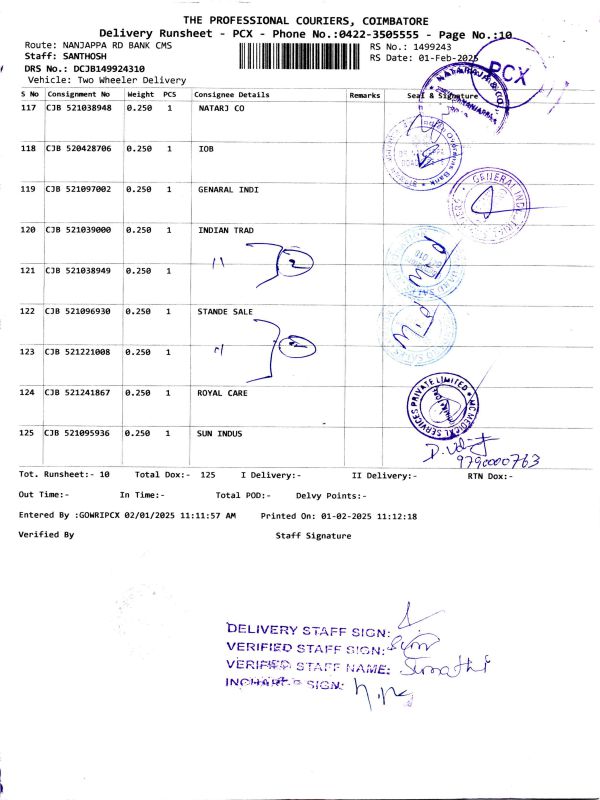 THE PROFESSIONAL COURIERS, COIMBATORE
Delivery Runsheet - PCX - Phone No.:0422-3505555 - Page No.:10
Route: NANJAPPA RD BANK CMS
RS No.: 1499243
Staff: SANTHOSH
RS Date: 01-Feb-2025
DRS No.: DCJB149924310
Vehicle: Two Wheeler Delivery
PCX
S No Consignment No Weight PCS Consignee Details Remarks Seal & Signature
117 CJB 521038948 0.250 1 NATARJ CO
118 CJB 520428706 0.250 1 IOB
119 CJB 521097002 0.250 1 GENARAL INDI
120 CJB 521039000 0.250 1 INDIAN TRAD
11 2
121 CJB 521038949 0.250 1
122 CJB 521096930 0.250 1 STANDE SALE
11 2
123 CJB 521221008 0.250 1
124 CJB 521241867 0.250 1 ROYAL CARE
MC MEDICAL SERVICES PRIVATE LIMITED
125 CJB 521095936 0.250 1 SUN INDUS
9790000763
Tot. Runsheet:- 10 Total Dox:- 125 I Delivery:- II Delivery:- RTN Dox:-
Out Time:- In Time:- Total POD:- Delvy Points:-
Entered By :GOWRIPCX 02/01/2025 11:11:57 AM Printed On: 01-02-2025 11:12:18
Verified By Staff Signature
DELIVERY STAFF SIGN:
VERIFIED STAFF SIGN:
VERIFIED STAFF NAME: Sumathi
INCHARGE SIGN: